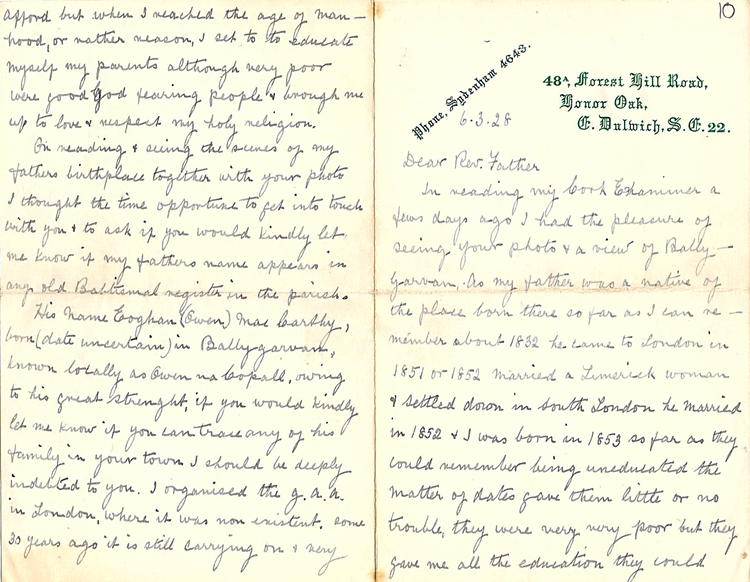 10
Phone, Sydenham 4643.
48A, Forest Hill Road,
Honor Oak,
E. Dulwich, S.E. 22.
6.3.28
Dear Rev. Father
In reading my Cork Examiner a
few days ago I had the pleasure of
seeing your photo & a view of Bally-
garvan. As my father was a native of
the place born there so far as I can re-
member about 1832 he came to London in
1851 or 1852 married a Limerick woman
& settled down in south London he married
in 1852 & I was born in 1853 so far as they
could remember being uneducated the
matter of dates gave them little or no
trouble, they were very very poor but they
gave me all the education they could
afford but when I reached the age of man-
hood, or rather reason, I set to to educate
myself my parents although very poor
were good God fearing people & brough me
up to love & respect my holy religion.
On reading & seeing the scenes of my
fathers birthplace together with your photo
I thought the time opportune to get into touch
with you & to ask if you would kindly let
me know if my fathers name appears in
any old Babtismal register in the parish.
His Name Eoghan (Owen) Mac Carthy,
born (date uncertain) in Ballygarvan,
known locally as Owen na Copall, owing
to his great strenght, if you would kindly
let me know if you can trace any of his
family in your town I should be deeply
indebted to you. I organised the G.A.A.
in London, where it was non existent, some
30 years ago it is still carrying on & very